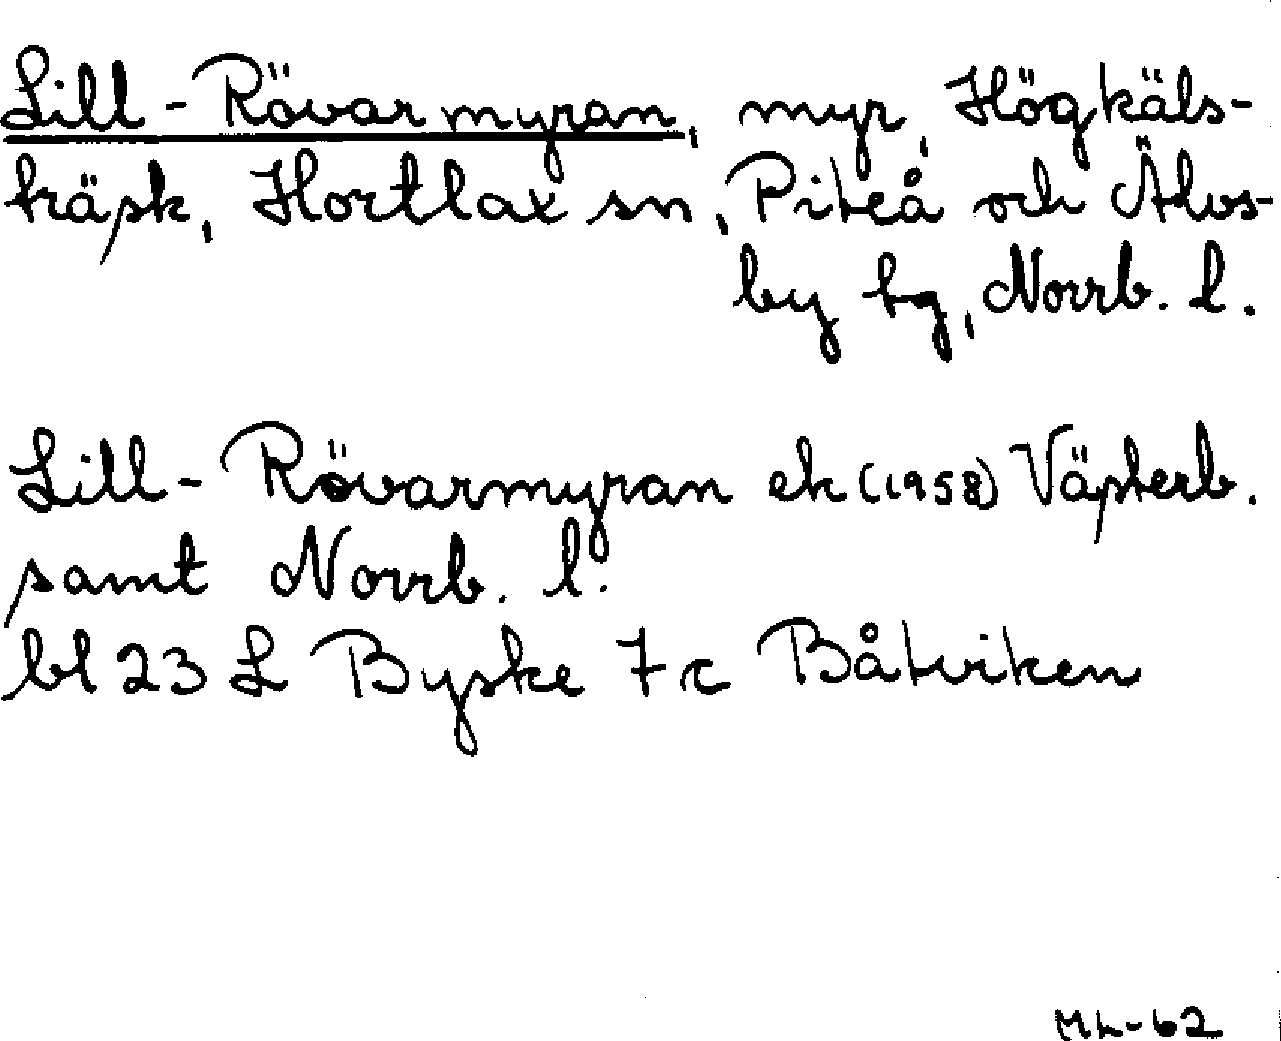 Lill-Rövarmyran, myr, Högkäls-
träsk, Hortlax sn, Piteå och Älvs-
by tg, Norrb. l.
Lill-Rövarmyran ek (1958) Västerb.
samt Norrb. l.
bl 23 L Byske 7c Båtviken
ML-62